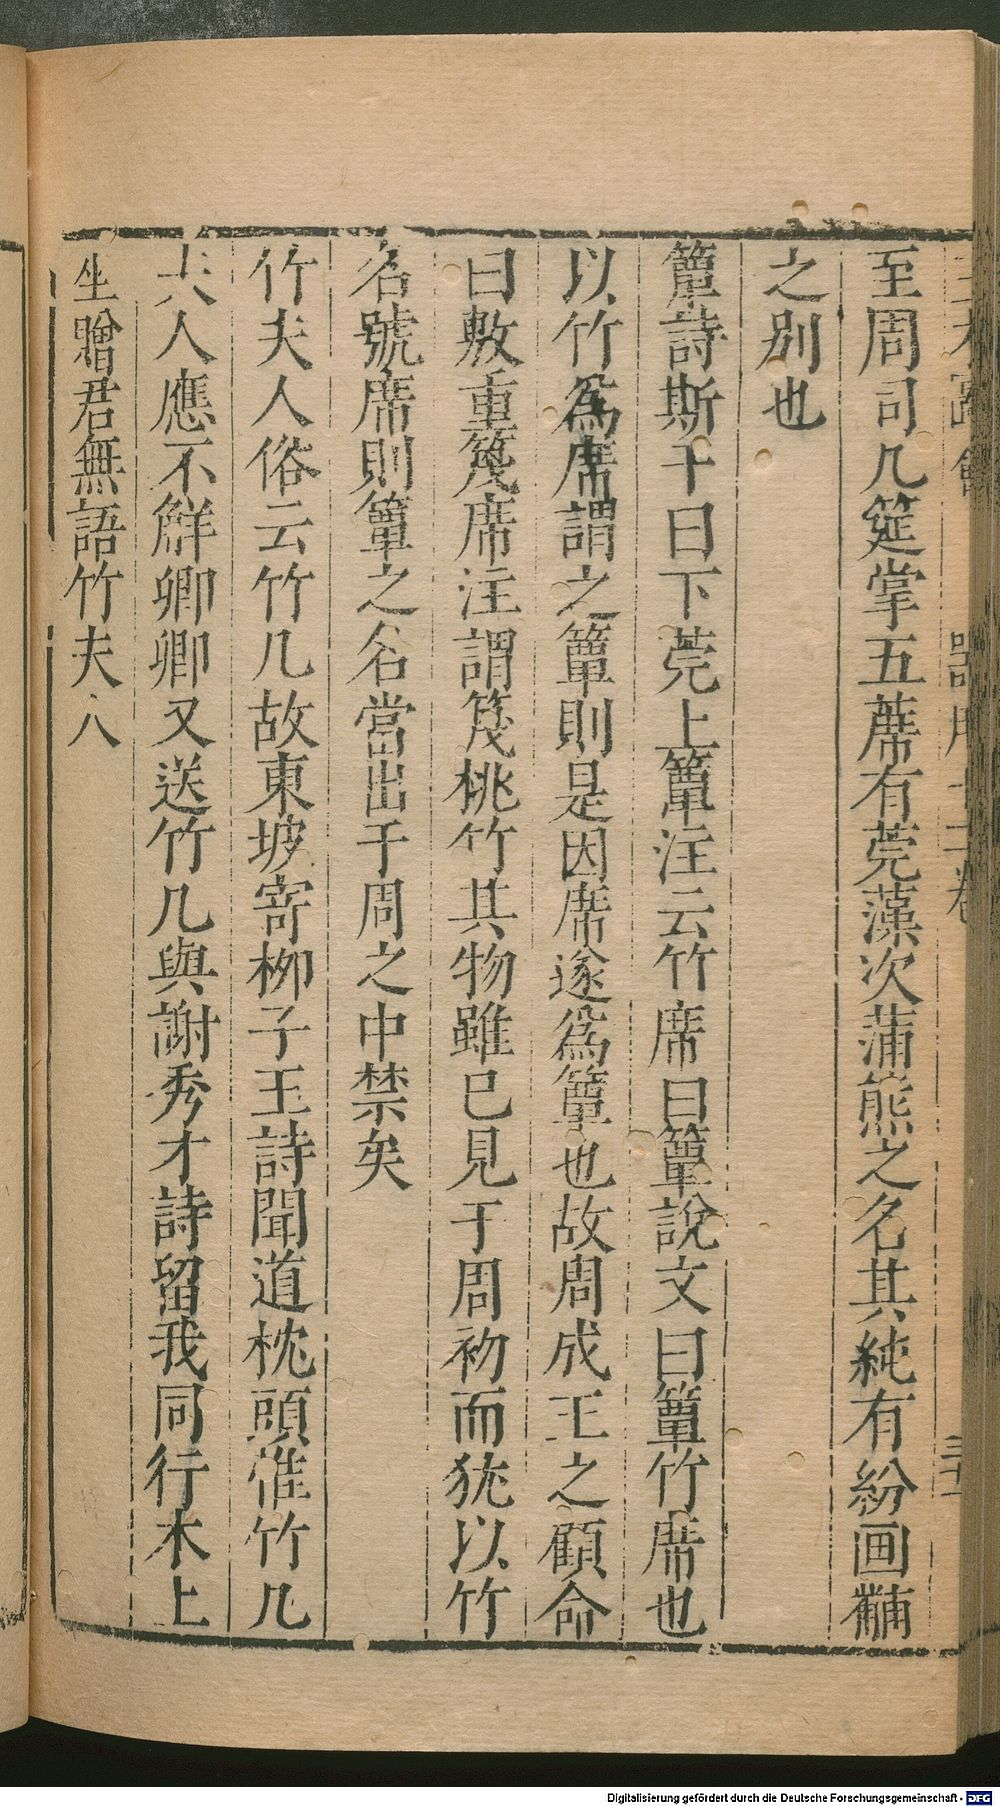 至周司几筵掌五蓆有莞藻次蒲熊之名其純有紛画黼
之別也
簟詩斯干曰下莞上簟注云竹席曰簟說文曰簟竹席也
以竹爲席謂之簟則是因席遂爲簟也故周成王之顧命
曰敷重篾席注謂篾桃竹其物雖已見于周初而犹以竹
名號席則簟之名當出于周之中禁矣
竹夫人俗云竹几故東坡寄柳子玉詩聞道枕頭惟竹几
夫人應不解卿卿又送竹几與謝秀才詩留我同行木上
坐贈君無語竹夫人
Digitalisierung gefördert durch die Deutsche Forschungsgemeinschaft - DFG